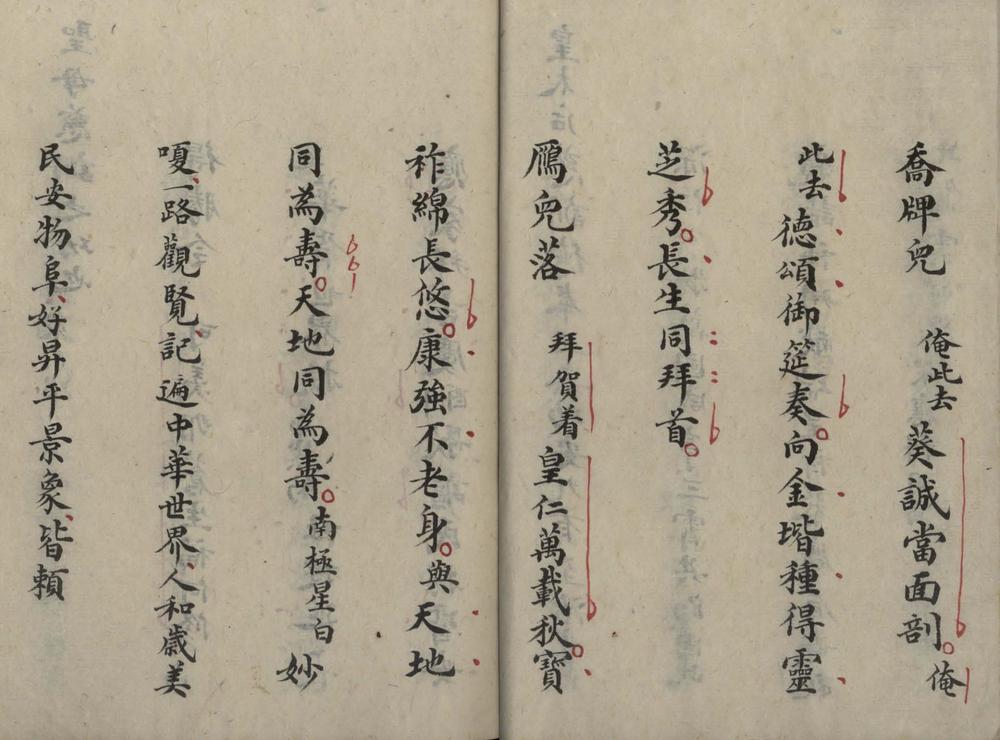 喬牌兒 俺此去葵誠當面剖。俺
此去德頌御筵奏。向金堦種得靈
芝秀。長生同拜首。
鴈兒落 拜賀着皇仁萬載秋。寶
祚綿長悠。康強不老身。與天地
同為壽。天地同為壽。南極星白妙
嗄、一路觀覽、記遍中華世界、人和歲美
民安物阜、好昇平景象、皆賴